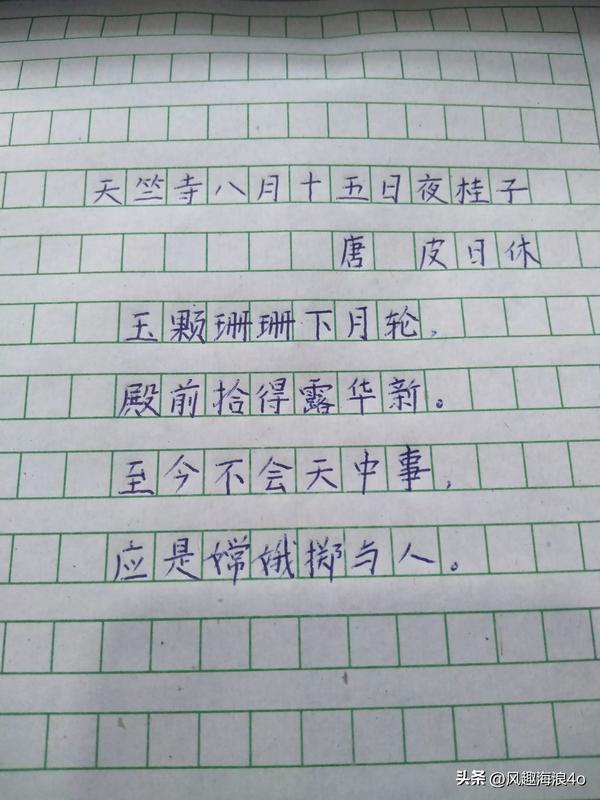 天竺寺八月十五日夜桂子
唐 皮日休
玉颗珊珊下月轮，
殿前拾得露华新。
至今不会天中事，
应是嫦娥掷与人。
头条 @风趣海浪4o